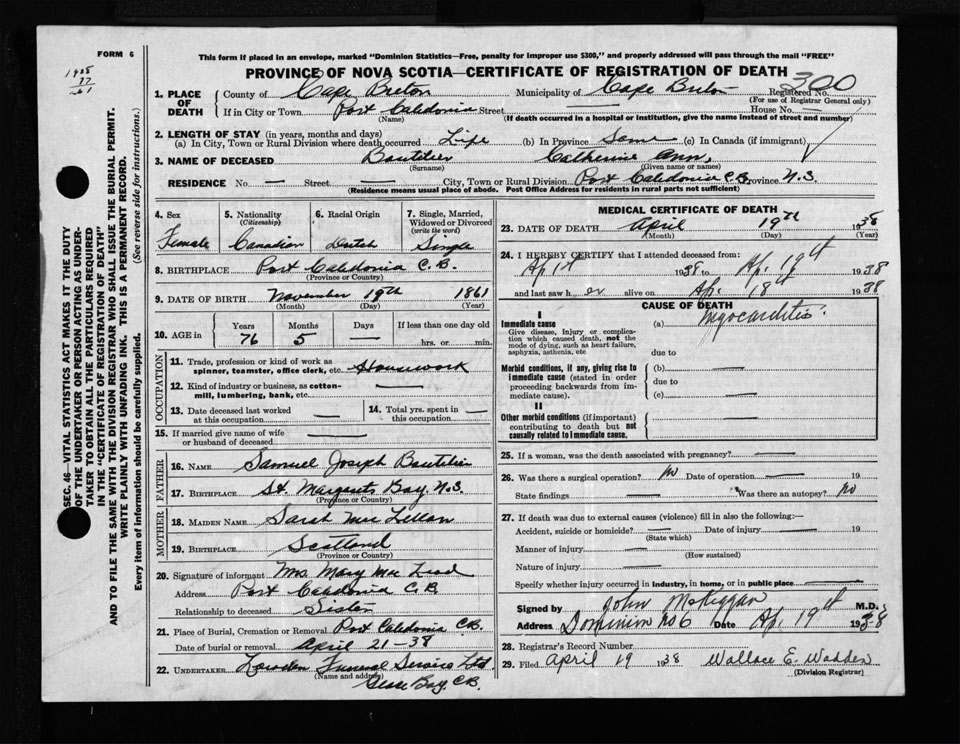 FORM 6
This form if placed in an envelope, marked "Dominion Statistics—Free, penalty for improper use $300," and properly addressed will pass through the mail "FREE"
PROVINCE OF NOVA SCOTIA—CERTIFICATE OF REGISTRATION OF DEATH
300
Registered No.
(For use of Registrar General only)
1. PLACE OF DEATH
County of Cape Breton Municipality of Cape Breton
If in City or Town Port Caledonia Street — House No. —
(Name) (If death occurred in a hospital or institution, give the name instead of street and number)
2. LENGTH OF STAY (in years, months and days)
(a) In City, Town or Rural Division where death occurred Life (b) In Province Same (c) In Canada (if immigrant)
3. NAME OF DECEASED Boutilier Catherine Ann,
(Surname) (Given name or names)
RESIDENCE No. — Street — City, Town or Rural Division Port Caledonia C.B. Province N.S.
(Residence means usual place of abode. Post Office Address for residents in rural parts not sufficient)
4. Sex Female
5. Nationality (Citizenship) Canadian
6. Racial Origin Dutch
7. Single, Married, Widowed or Divorced (write the word) Single
8. BIRTHPLACE Port Caledonia C.B.
(Province or Country)
9. DATE OF BIRTH November 19th 1861
(Month) (Day) (Year)
10. AGE in Years 76 Months 5 Days — If less than one day old hrs. or min.
OCCUPATION
11. Trade, profession or kind of work as spinner, teamster, office clerk, etc. Housework
12. Kind of industry or business, as cotton-mill, lumbering, bank, etc. —
13. Date deceased last worked at this occupation —
14. Total yrs. spent in this occupation —
15. If married give name of wife or husband of deceased —
FATHER
16. NAME Samuel Joseph Boutilier
17. BIRTHPLACE St. Margarets Bay, N.S.
(Province or Country)
MOTHER
18. MAIDEN NAME Sarah Mc Lellan
19. BIRTHPLACE Scotland
(Province or Country)
20. Signature of informant Mrs Mary Mc Leod
Address Port Caledonia C.B.
Relationship to deceased Sister
21. Place of Burial, Cremation or Removal Port Caledonia C.B.
Date of burial or removal April 21-38
22. UNDERTAKER Lowden Funeral Service Ltd
(Name and address) Glace Bay, C.B.
MEDICAL CERTIFICATE OF DEATH
23. DATE OF DEATH April 19th 1938
(Month) (Day) (Year)
24. I HEREBY CERTIFY that I attended deceased from:
1938 to Ap. 19th 1938
and last saw h er alive on Ap. 18th 1938
CAUSE OF DEATH
I
Immediate cause
Give disease, injury or complication which caused death, not the mode of dying, such as heart failure, asphyxia, asthenia, etc
(a) Myocarditis.
due to
Morbid conditions, if any, giving rise to immediate cause (stated in order proceeding backwards from immediate cause).
(b) —
due to
(c) —
II
Other morbid conditions (if important) contributing to death but not causally related to immediate cause. —
25. If a woman, was the death associated with pregnancy? —
26. Was there a surgical operation? No Date of operation — 19
State findings — Was there an autopsy? No
27. If death was due to external causes (violence) fill in also the following:—
Accident, suicide or homicide? — Date of injury — 19
(State which)
Manner of injury —
(How sustained)
Nature of injury —
Specify whether injury occurred in industry, in home, or in public place —
Signed by John McKiggan M.D.
Address Dominion No 6 Date Ap. 19th 1938
28. Registrar's Record Number
29. Filed April 19 1938 Wallace E. Wadden
(Division Registrar)
SEC. 46—VITAL STATISTICS ACT MAKES IT THE DUTY
OF THE UNDERTAKER OR PERSON ACTING AS UNDER-
TAKER TO OBTAIN ALL THE PARTICULARS REQUIRED
IN THE "CERTIFICATE OF REGISTRATION OF DEATH"
AND TO FILE THE SAME WITH THE DIVISION REGISTRAR WHO SHALL ISSUE THE BURIAL PERMIT.
WRITE PLAINLY WITH UNFADING INK. THIS IS A PERMANENT RECORD.
Every item of information should be carefully supplied. (See reverse side for instructions.)